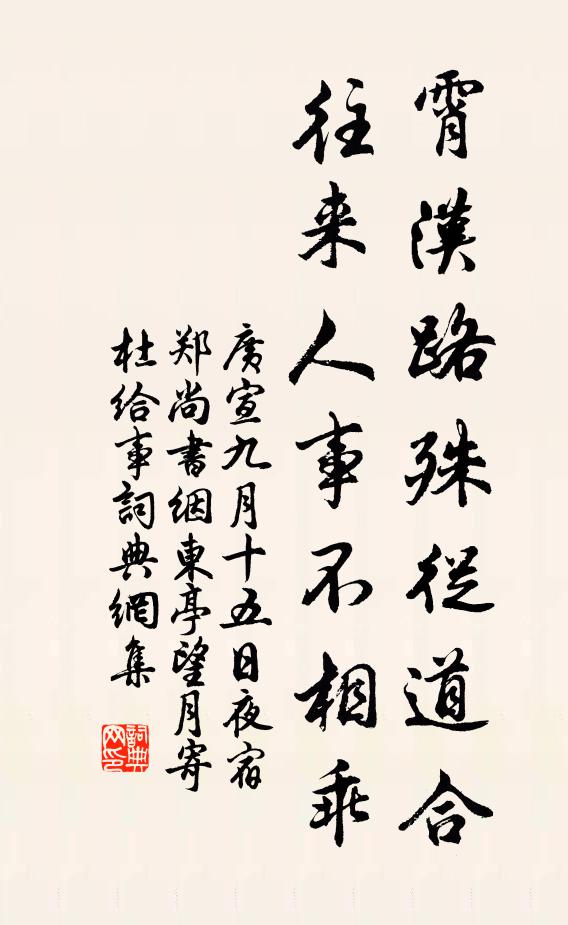 霄漢路殊從道合
往来人事不相乖
廣宣九月十五日夜宿
郑尚書絪東亭望月寄
杜給事詞典網集
詞典网印